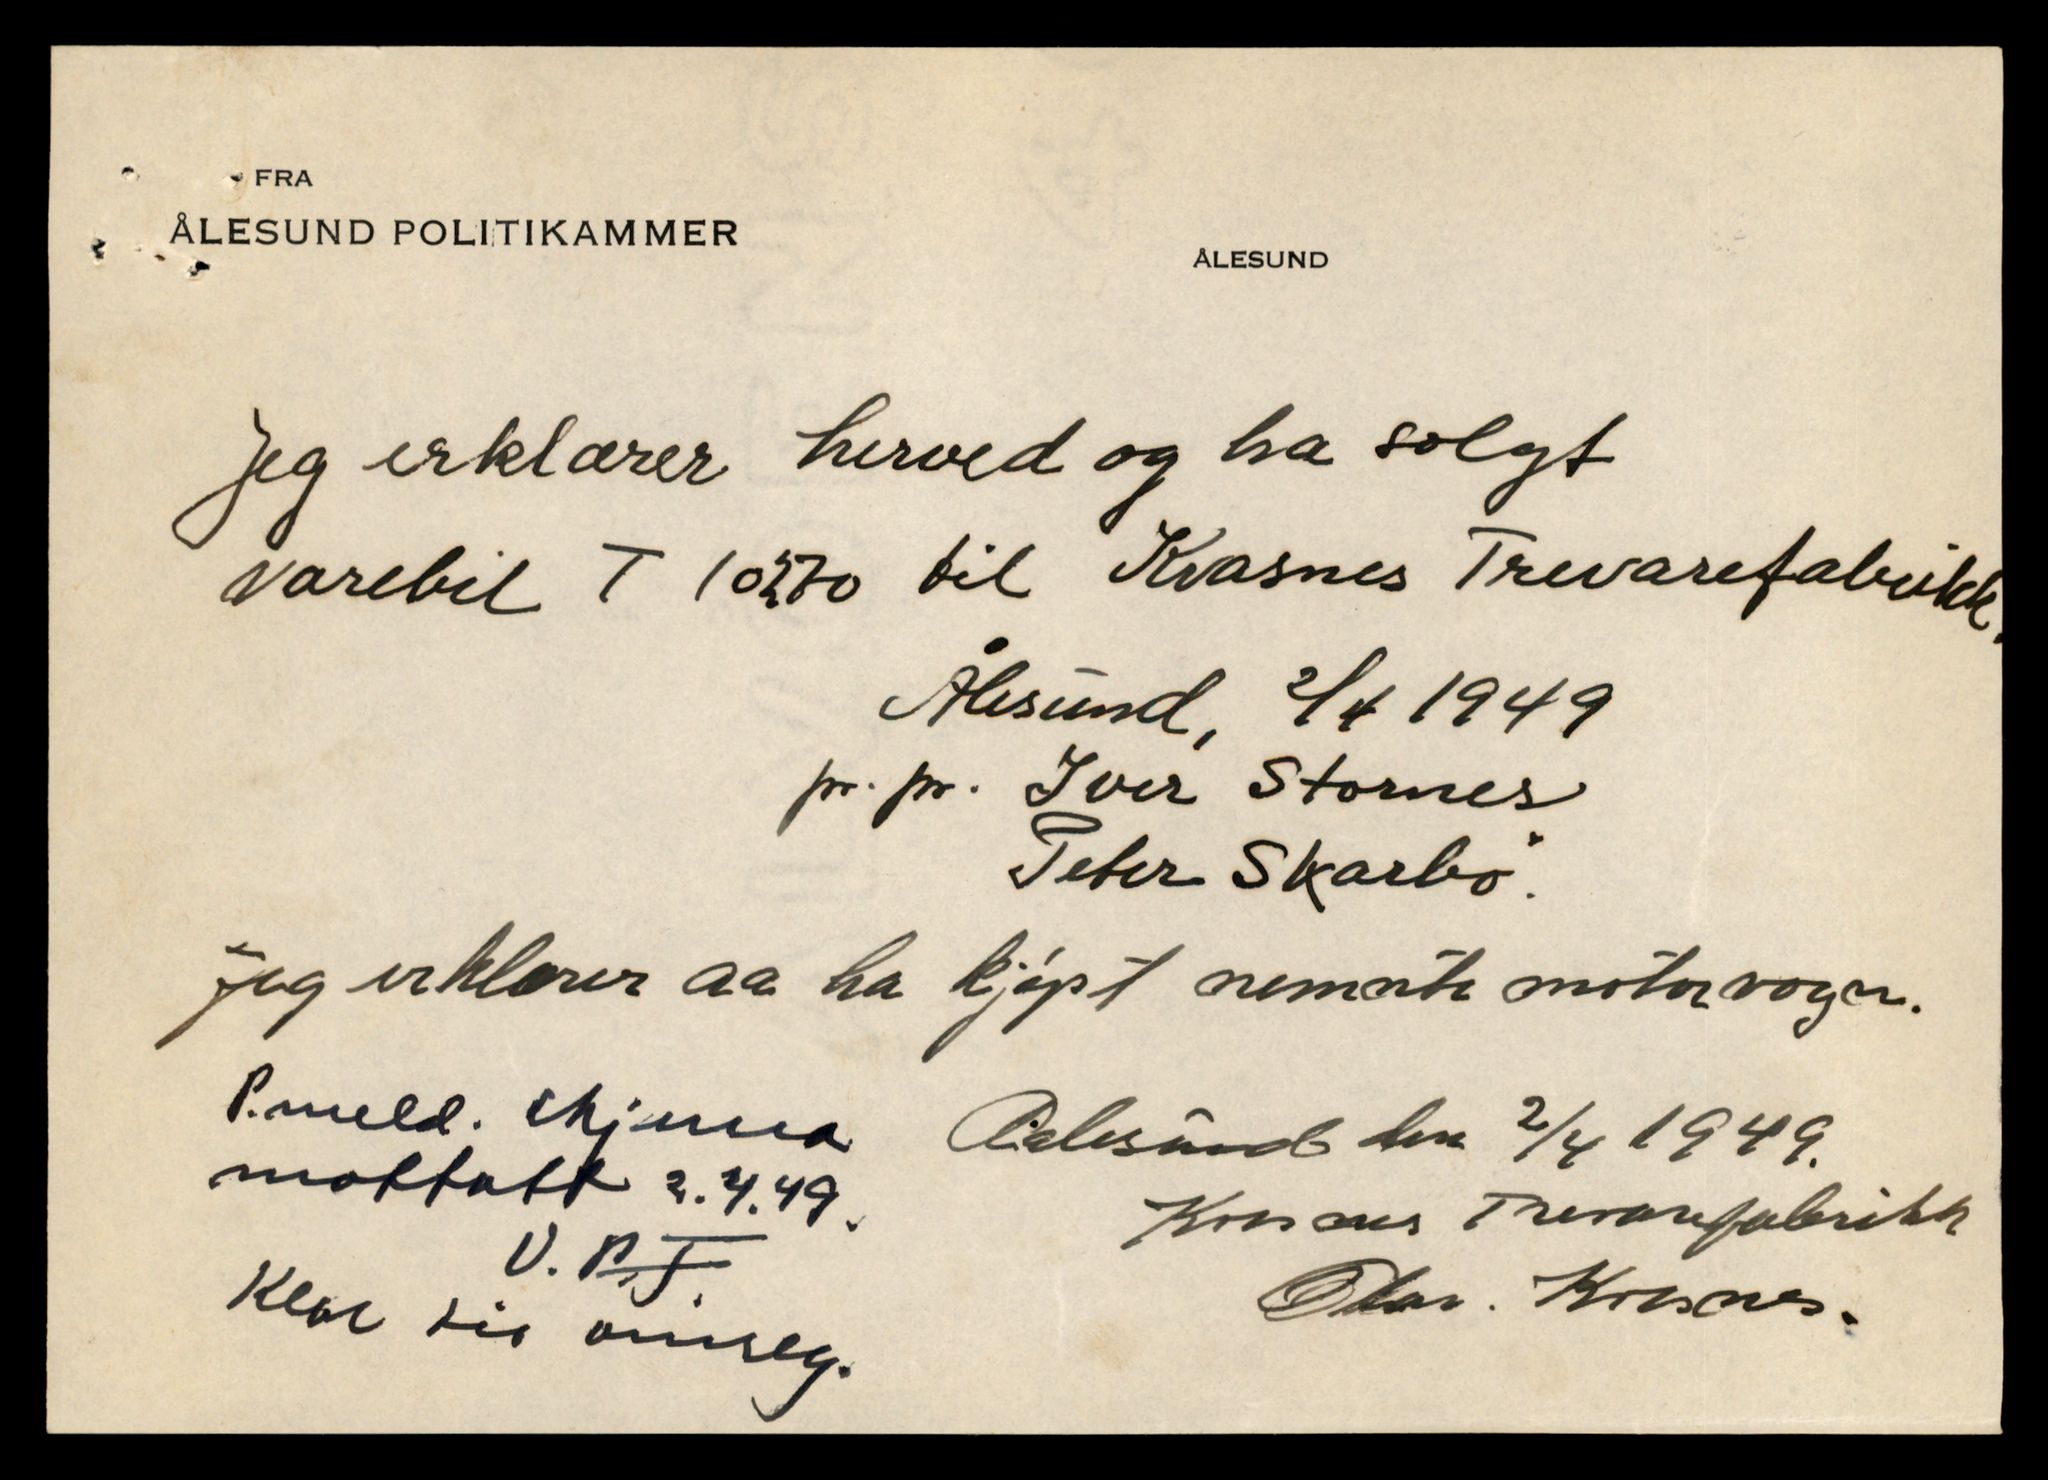 FRA
ÅLESUND POLITIKAMMER
ÅLESUND
Jeg erklærer herved og ha solgt
varebil T til Kvasnes Trevarefabrikk.
Ålesund, 2/4 1949
pr. pr. Iver Stornes
Peter Skarbö.
Jeg erklærer aa ha kjøpt nemnte motorvogn.
P.meld. skjema
mottatt 2.4.49.
Aalesund den 2/4 1949.
Kvasnes Trevarefabrikk
Kvasnes.
Klar til omreg.